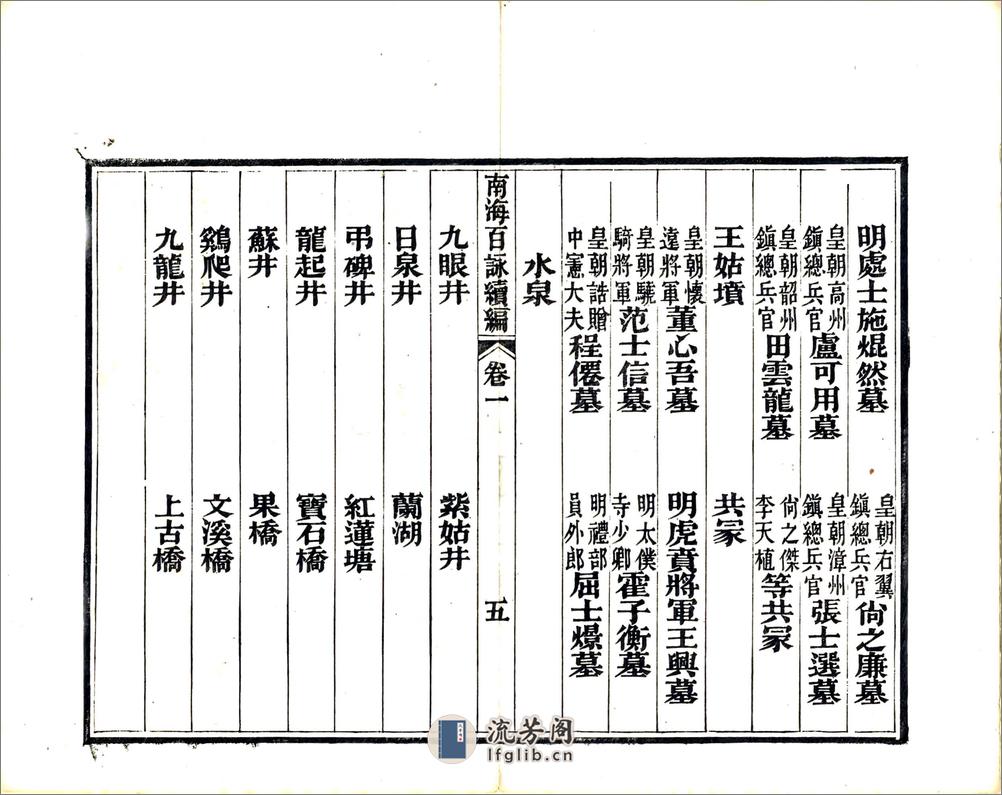 明處士施焜然墓　皇朝右翼鎮總兵官尙之廉墓
皇朝高州鎮總兵官盧可用墓　皇朝漳州鎮總兵官張士選墓
皇朝韶州鎮總兵官田雲龍墓　尙之傑李天植等共冢
王姑墳　共冢
皇朝懷遠將軍董心吾墓　明虎賁將軍王興墓
皇朝驍騎將軍范士信墓　明太僕寺少卿霍子衡墓
皇朝誥贈中憲大夫程僊墓　明禮部員外郎屈士燝墓
水泉
南海百詠續編　卷一　五
九眼井　紫姑井
日泉井　蘭湖
弔碑井　紅蓮塘
龍起井　寶石橋
蘇井　果橋
鷄爬井　文溪橋
九龍井　上古橋
流芳阁
lfglib.cn